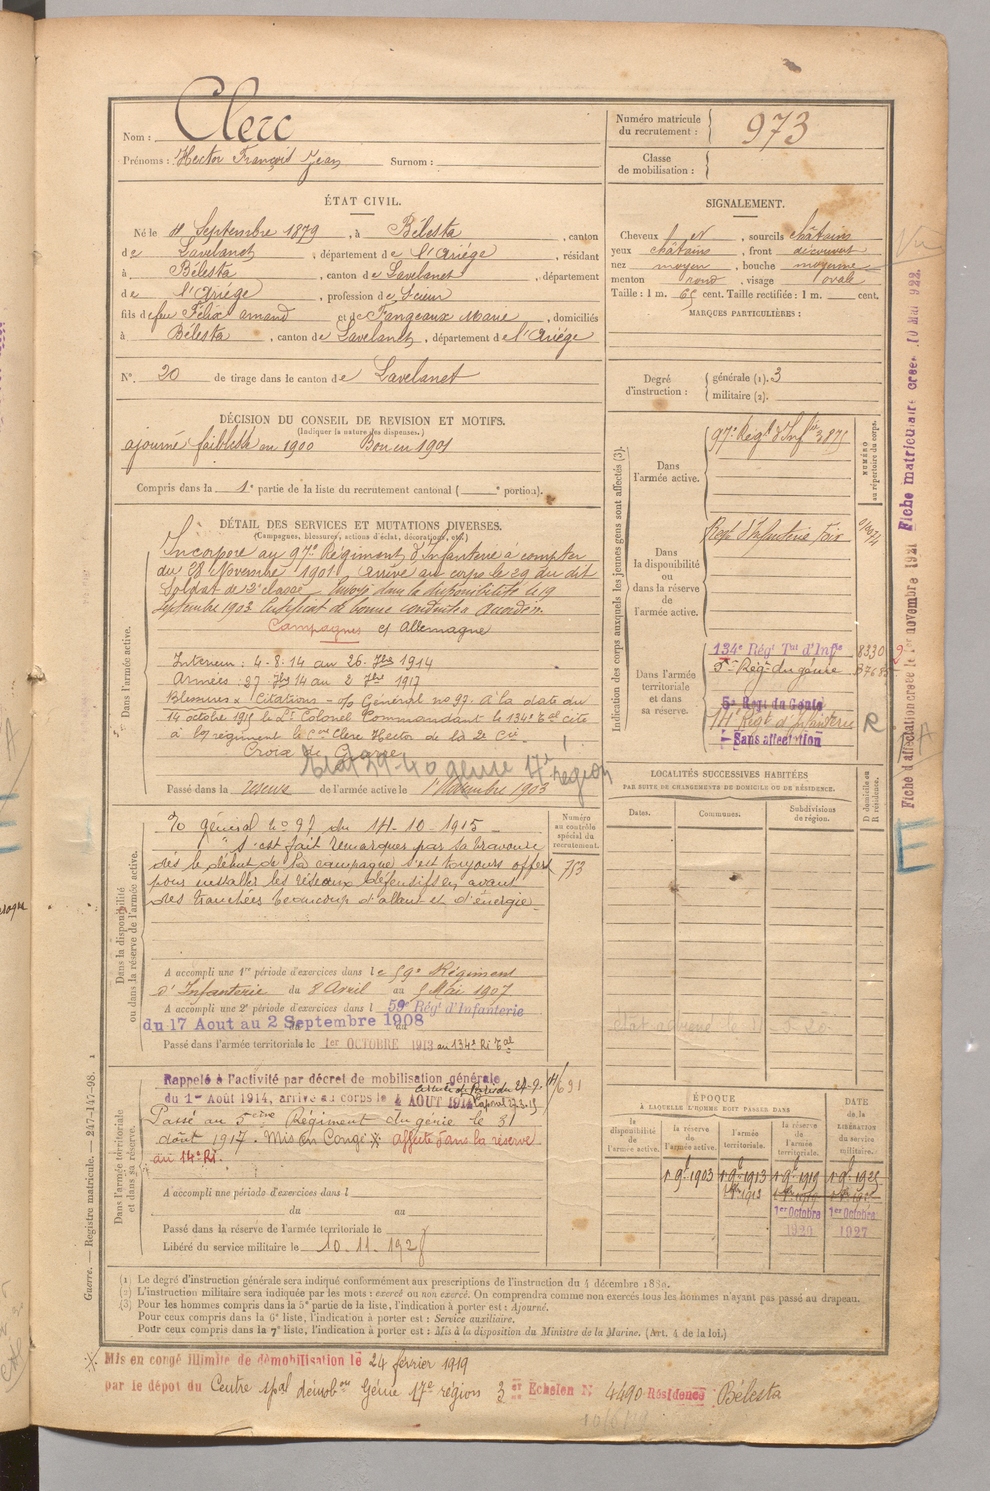 Nom : Clerc
Prénoms : Hector François Jean Surnom :
Numéro matricule du recrutement : 973
Classe de mobilisation :
ÉTAT CIVIL.
Né le Septembre 1879, à Bélesta, canton
de Lavelanet, département de l'Ariége, résidant
à Bélesta, canton de Lavelanet, département
de l'Ariége, profession de
fils de feu Félix Amand et de Fangeaux Marie, domiciliés
à Bélesta, canton de Lavelanet, département de l'Ariége
N°. 20 de tirage dans le canton de Lavelanet
SIGNALEMENT.
Cheveux , sourcils châtains
yeux châtains, front découvert
nez moyen, bouche moyenne
menton rond, visage ovale
Taille : 1 m. 65 cent. Taille rectifiée : 1 m. cent.
MARQUES PARTICULIÈRES :
Degré d'instruction : générale (1). 3
militaire (2).
DÉCISION DU CONSEIL DE REVISION ET MOTIFS.
(Indiquer la nature des dispenses.)
ajourné faiblesse en 1900 Bon en 1901
Compris dans la 1e partie de la liste du recrutement cantonal ( e portion).
DÉTAIL DES SERVICES ET MUTATIONS DIVERSES.
(Campagnes, blessures, actions d'éclat, décorations, etc.)
Dans l'armée active.
Incorporé au 97e Régiment d'Infanterie à compter
du 28 Novembre 1901. Arrivé au corps le 29 du dit
Soldat de 2e classe. Envoyé dans la disponibilité le 19
Septembre 1903 Certificat de bonne conduite accordé.
Campagnes c/ Allemagne
Intérieur : 4-8-14 au 26 7bre 1914
Armées : 27 7bre 14 au 2 7bre 1917
Blessures x Citations - O/ Général no 97. à la date du
14 octobre 1915 le Lt Colonel Commandant le 134e Tal cite
à l'O/ régiment le Clerc Hector de la 2e Cie.
Croix de Guerre
génie 17e région
Passé dans la réserve de l'armée active le 1er Novembre 1903
Dans la disponibilité ou dans la réserve de l'armée active.
O/ général no 97 du 14-10-1915
"S'est fait remarquer par sa bravoure
dès le début de la campagne s'est toujours offert
pour installer les réseaux défensifs en avant
des tranchées beaucoup d'allant et d'énergie.
Numéro au contrôle spécial du recrutement.
753
A accompli une 1re période d'exercices dans le 59e Régiment
d'Infanterie du 8 Avril au Mai 1907
A accompli une 2e période d'exercices dans l 59e Régt d'Infanterie
du 17 Aout au 2 Septembre 1908
Passé dans l'armée territoriale le 1er OCTOBRE 1913 au 134e Ri Tal
Dans l'armée territoriale et dans sa réserve.
Rappelé à l'activité par décret de mobilisation générale
du 1er Août 1914, arrivé au corps le 4 AOUT 1914
Passé au 5ème Régiment du génie le 31
août 1917. Mis en Congé ※ affecté dans la réserve
au 14e Ri.
A accompli une période d'exercices dans l
du au
Passé dans la réserve de l'armée territoriale le
Libéré du service militaire le 10.11.192
Indication des corps auxquels les jeunes gens sont affectés (3).
NUMÉRO au répertoire du corps.
Dans l'armée active.
97e Régt d'Infie 3875
Dans la disponibilité ou dans la réserve de l'armée active.
Régt d'Infanterie Foix
Dans l'armée territoriale et dans sa réserve.
134e Régt Tal d'Infie 8330
5e Régt du génie
5e Regt du Génie
14e Régt d'Infanterie R.
Sans affectation
Fiche d'affectation créée le 1er novembre 1921 Fiche matriculaire créée 10 Mai 922.
E
LOCALITÉS SUCCESSIVES HABITÉES
PAR SUITE DE CHANGEMENTS DE DOMICILE OU DE RÉSIDENCE.
Dates. Communes. Subdivisions de région. D domicile ou R résidence.
ÉPOQUE
À LAQUELLE L'HOMME DOIT PASSER DANS
la disponibilité de l'armée active. la réserve de l'armée active. l'armée territoriale. la réserve de l'armée territoriale.
DATE de la LIBÉRATION du service militaire.
1er 9bre 1903 1er 9bre 1913 1er 9bre 1919 1er 9bre 1925
1er Octobre 1920 1er Octobre 1927
(1) Le degré d'instruction générale sera indiqué conformément aux prescriptions de l'instruction du 4 décembre 1889.
(2) L'instruction militaire sera indiquée par les mots : exercé ou non exercé. On comprendra comme non exercés tous les hommes n'ayant pas passé au drapeau.
(3) Pour les hommes compris dans la 5e partie de la liste, l'indication à porter est : Ajourné.
Pour ceux compris dans la 6e liste, l'indication à porter est : Service auxiliaire.
Pour ceux compris dans la 7e liste, l'indication à porter est : Mis à la disposition du Ministre de la Marine. (Art. 4 de la loi.)
Guerre. — Registre matricule. — 247-147-98.
※ Mis en congé illimité de démobilisation le 24 février 1919
par le dépot du Centre spal démobon Génie 17e région 3 er Echelon N° 4490 Résidence Bélesta